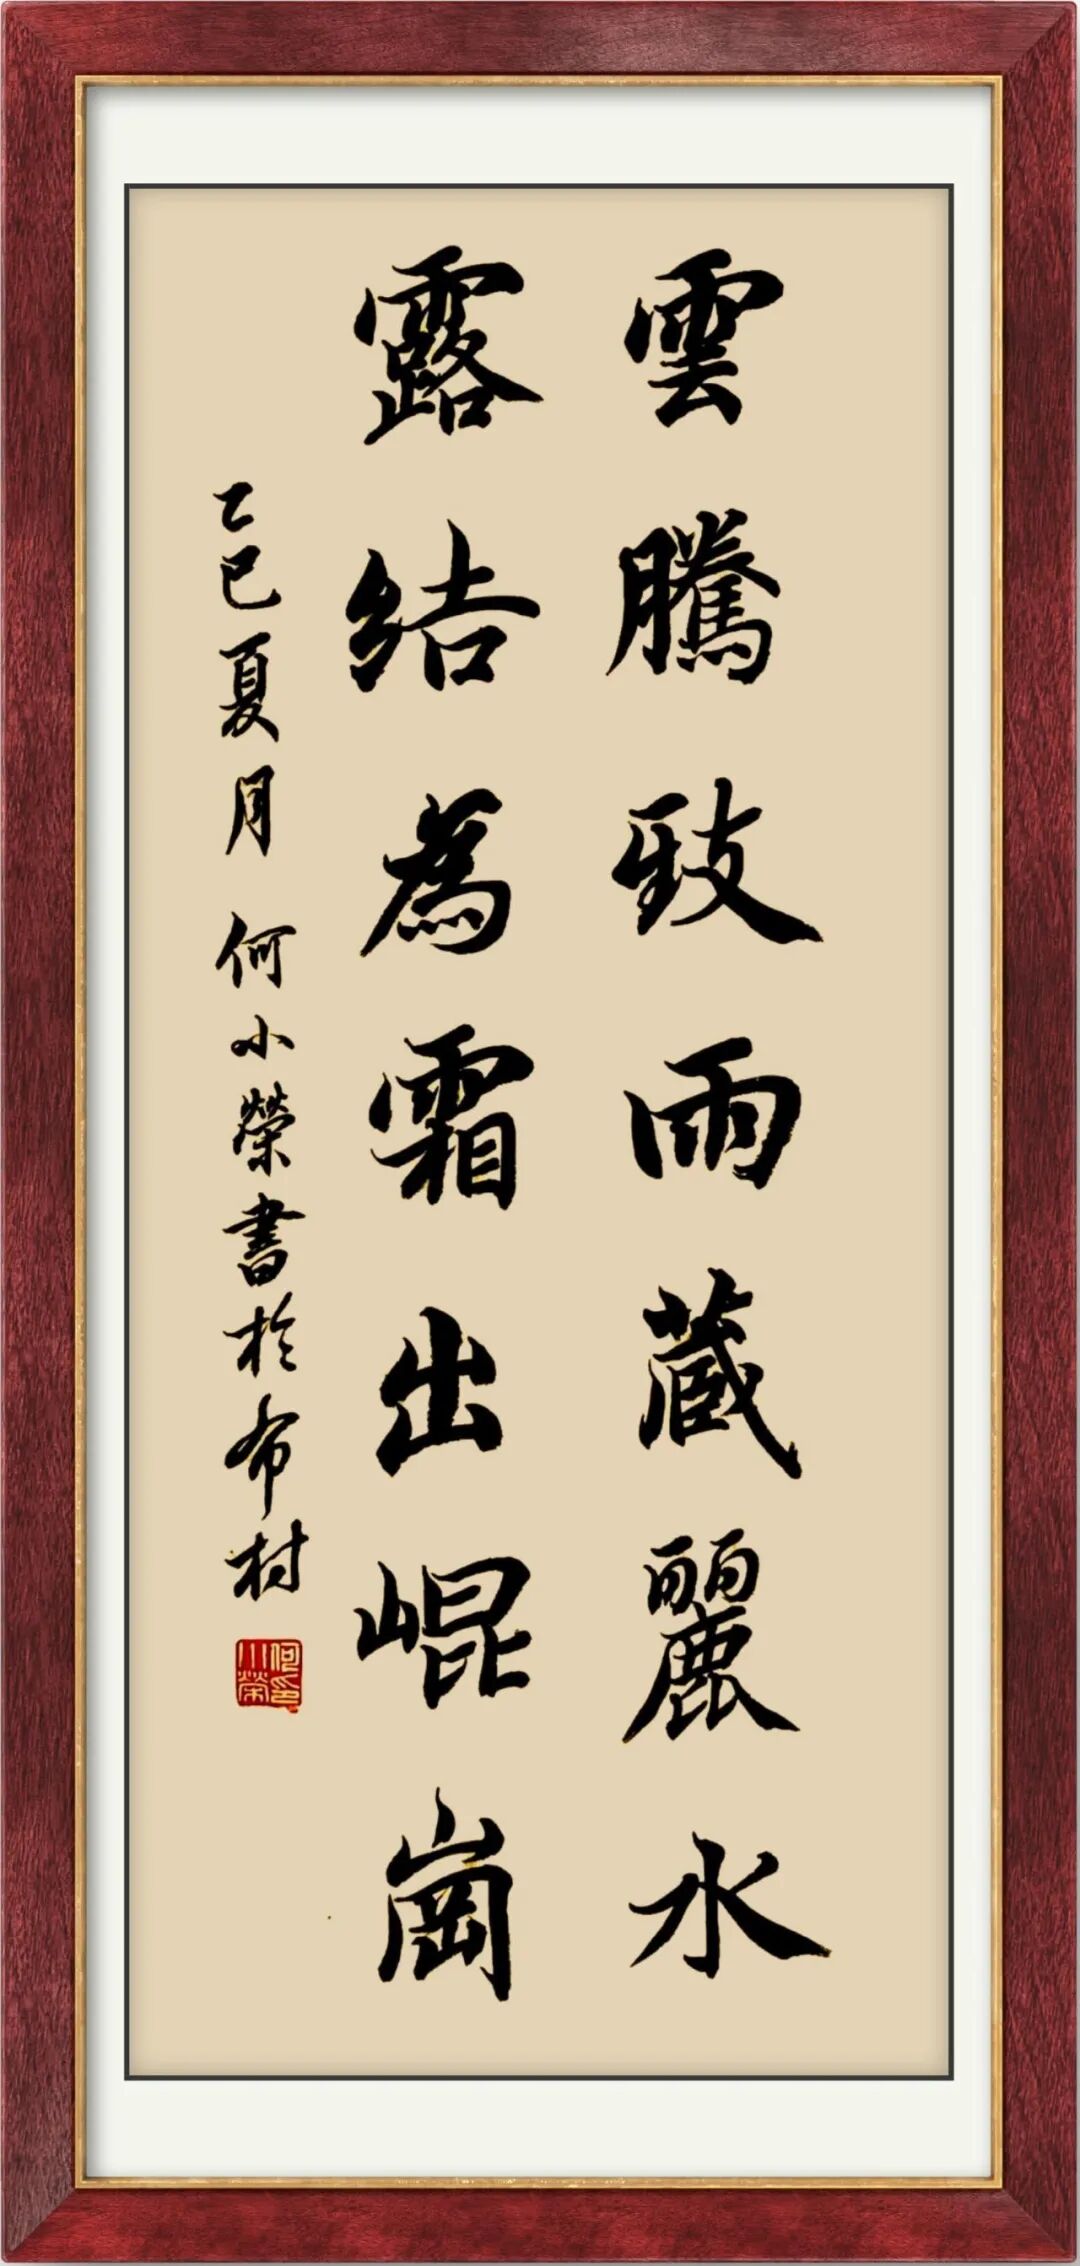 雲騰致雨蔵麗水
露結為霜出崐崗
乙巳夏月 何小榮書於布村
何印小榮